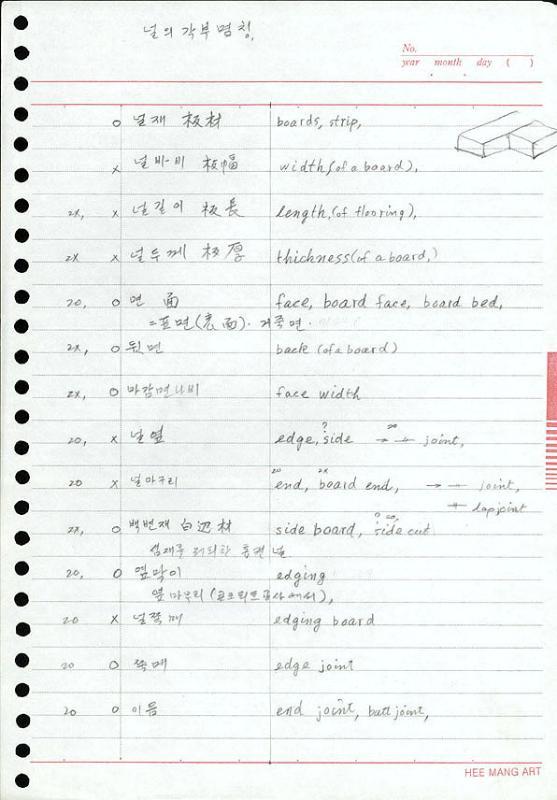 널의 각부 명칭.
No.
year month day ( )
o 널재 板材 boards, strip,
x 널나비 板幅 width(of a board),
2x, x 널길이 板長 length,(of flooring),
2x x 널두께 板厚 thickness(of a board,)
20, o 면 面 face, board face, board bed,
=표면(表面). 거죽면.
2x, o 뒷면 back (of a board)
2x, o 마감면나비 face width
20, x 널옆 edge, side joint,
20 x 널마구리 end, board end, joint,
lap joint
2x, o 백변재 白辺材 side board, side cut
심재를 제외한 통켠 널
20, o 옆막이 edging
옆마무리 (콘크리트공사에서),
20 x 널쪽매 edging board
20 o 쪽매 edge joint
20 o 이음 end joint, butt joint,
HEE MANG ART